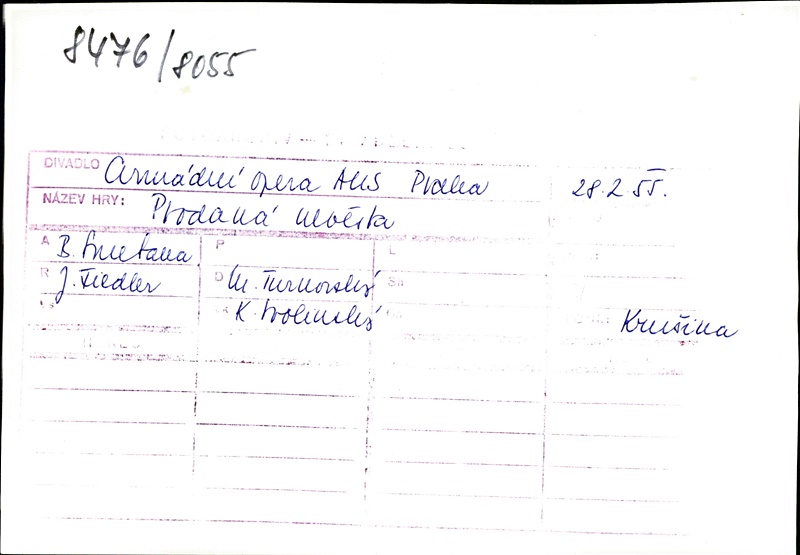 8476/8055
DIVADLO Armádní opera AUS Praha 28.2.55.
NÁZEV HRY: Prodaná nevěsta
A B. Smetana P L
R J. Fiedler D M. Turnovský Sn
K. Svolinský Krušina